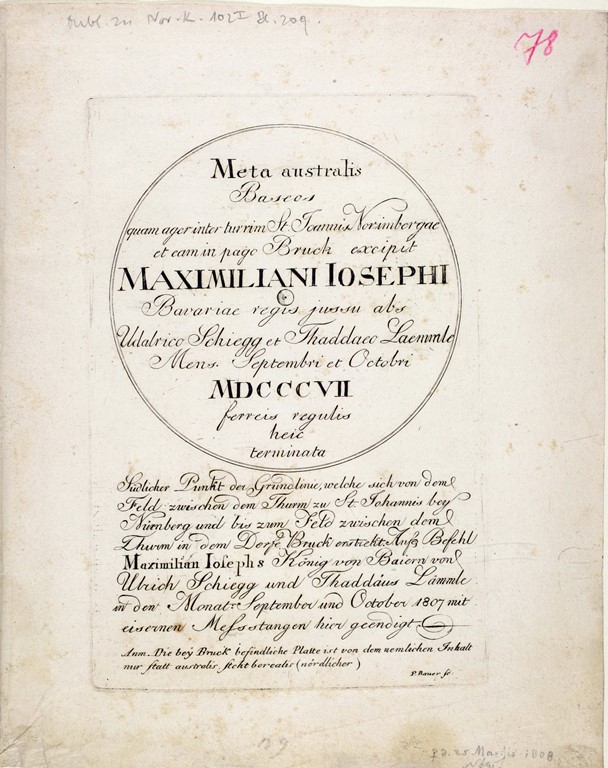 Nor. K. 102 I Bl. 209.
78
Meta australis
Baseos
quam ager inter turrim St. Joannis Norimbergae
et eam in pago Bruck excipit
MAXIMILIANI IOSEPHI
Bavariae regis jussu abs
Udalrico Schiegg et Thaddaeo Laemmle
Mens. Septembri et Octobri
MDCCCVII
ferreis regulis
heic
terminata
Südlicher Punkt der Grundlinie, welche sich von dem
Feld zwischen dem Thurm zu St. Johannis bey
Nürnberg und bis zum Feld zwischen dem
Thurm in dem Dorfe Bruck erstrekt. Auf Befehl
Maximilian Iosephs König von Baiern von
Ulrich Schiegg und Thaddäus Lämmle
in den Monat: September und October 1807 mit
eisernen Messstangen hier geendigt
Anm. Die bey Bruck befindliche Platte ist von dem nemlichen Inhalt
nur statt australis steht borealis (nördlicher)
P. Bauer sc.
1808